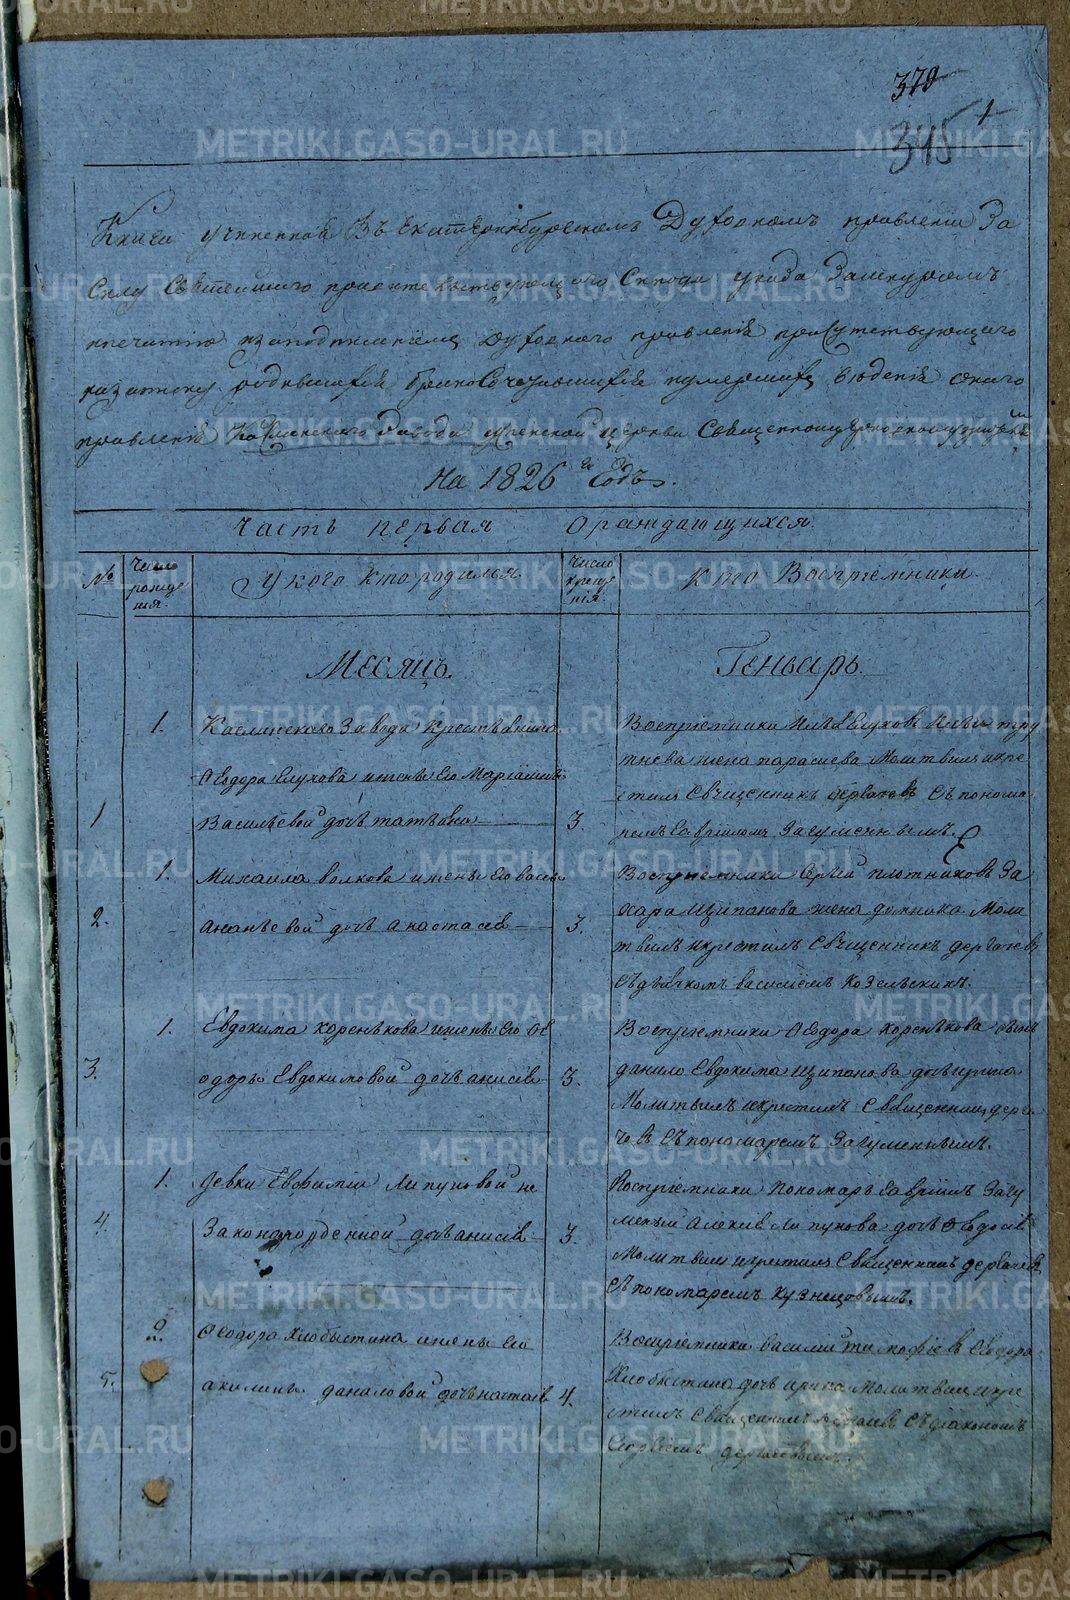 370
1
345
Книга учиненная Въ Екатеринбурскомъ Духовномъ правленіи За
Силу Святейшаго правительствующаго Синода указа Зашнуромъ
ипечатью изаподписаніемъ Духовнаго правленія присутствующаго
родившихся бракосочетавшихся иумершихъ
правленія Каслинскаго Завода успенской церкви Священноцерковнослужителямъ
На 1826й Годъ.
Часть первая Ораждающихся.
№
Число рожде нія.
У кого кто родился
Число креще нія.
Кто Воспріемники
Месяцъ Генварь.
1 1. Каслинского Завода Крестьянина
Феодора Глухова ижены Его Маріи
Васильевой дочь татьяна 3.
Воспріемники Илья Глуховъ
тнева жена параскева Молитвилъ икре
стилъ Священникъ дергачевъ Съ понома
ремъ Гавріиломъ Загуменныемъ.
2. 1. Михаила волкова ижены Его васи
ананьевой дочь анастасія 3.
Воспріемники Сергій плотниковъ За
хара Щипанова жена домника Моли
твилъ икрестилъ Священникъ дергачевъ
Съ дьячкомъ василіемъ Козельскимъ.
3. 1. Евдокима коренькова ижены Его Фе
одоры Евдокимовой дочь анисія 3.
Воспріемники Феодора коренькова сынъ
данило Евдокима Щипанова дочь ирина
Молитвилъ икрестилъ Священникъ дерга
чевъ Съ пономаремъ Загуменнымъ.
4. 1. Девки Евфиміи Липуновой не
Законнорожденной дочь анисія 3.
Воспріемники пономарь Гавріилъ Загу
менный алексія Липунова дочь Феодосія
Молитвилъ икрестилъ Священникъ дергачевъ
Съ пономаремъ кузнецовымъ.
5. 2. Феодора Хлобыстина ижены Его
акилины даниловой дочь 4.
Воспріемники василій тимофеевъ Феодора
Хлобыстина дочь ирина Молитвилъ икре
стилъ Священникъ Съ діакономъ
дергачевымъ.
METRIKI.GASO-URAL.RU